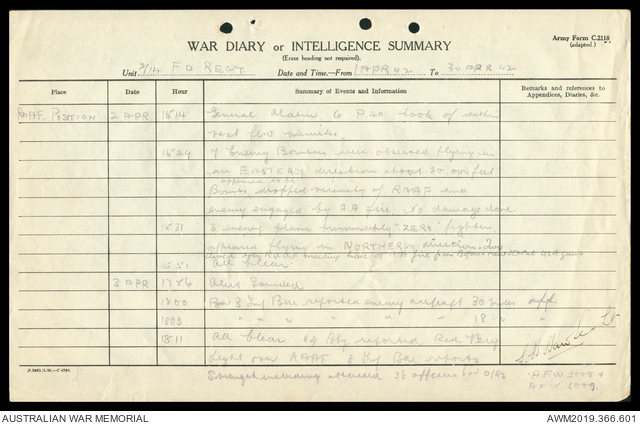 Army Form C.2118
(adapted.)
WAR DIARY or INTELLIGENCE SUMMARY
(Erase heading not required).
Unit 2/14 FD REGT Date and Time.—From 1 APR 42 To 30 APR 42
Place Date Hour Summary of Events and Information Remarks and references to Appendices, Diaries, &c.
RAAF POSITION 2 APR 1514 General Alarm 6 P.40 took off within
next few minutes.
1524 7 Enemy Bombers were observed flying in
an EASTERLY direction about 20,000 feet
Bombs dropped vicinity of RAAF and
enemy engaged by AA fire. No damage done.
1531 3 enemy planes presumably "ZERO" fighters
appeared flying in NORTHERLY direction. Two
RAAF AA fire from Bofors
1551 All clear.
3 APR 1756 Alert Sounded
1800 3 Inf Bde reported enemy aircraft 30 miles off
1803 " " " " " 18 "
1811 All clear 64 Bty reported Red Very
light over RAAF 3 Inf Bde reports
Strength including attached 36 officers O/Rs
A.F.W 3008 &
A.F.W 3009.
AUSTRALIAN WAR MEMORIAL AWM2019.366.601